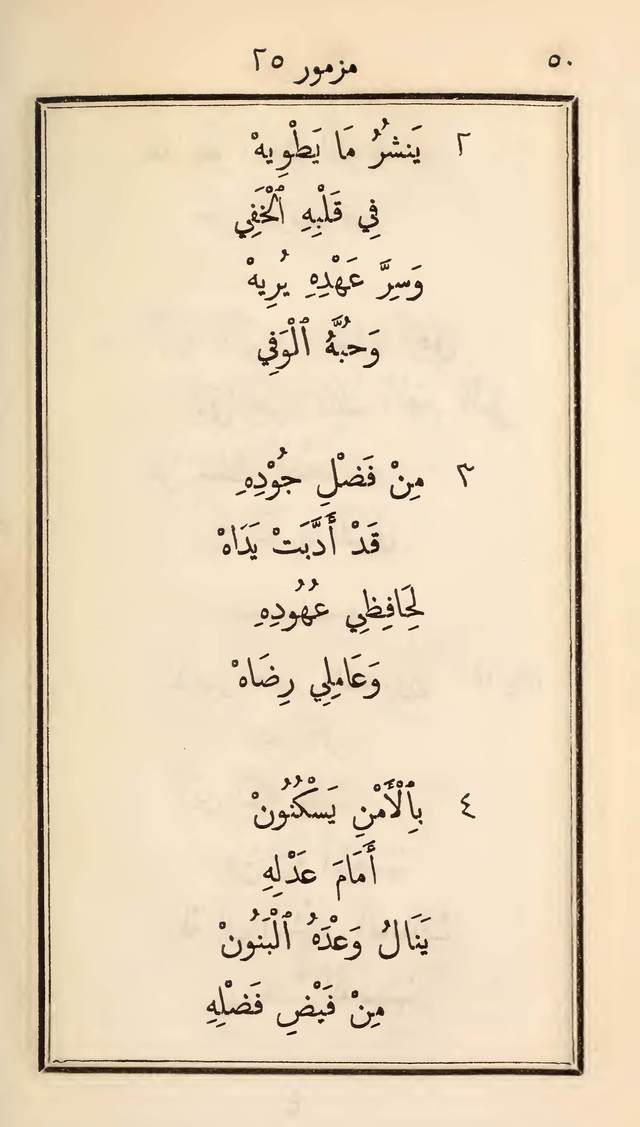 ٥٠ مزمور ٢٥
٢ يَنشُرُ مَا يَطْوِيهْ
فِي قَلْبِهِ ٱلْخَفِي
وَسِرَّ عَهْدِهِ يُرِيهْ
وَحُبَّهُ ٱلْوَفِي
٣ مِنْ فَضْلِ جُوْدِهِ
قَدْ أَدَّبَتْ يَدَاهْ
لِحَافِظِي عُهُودِهِ
وَعَامِلِي رِضَاهْ
٤ بِٱلْأَمْنِ يَسْكُنُونْ
أَمَامَ عَدْلِهِ
يَنَالُ وَعْدَهُ ٱلْبَنُونْ
مِنْ فَيْضِ فَضْلِهِ